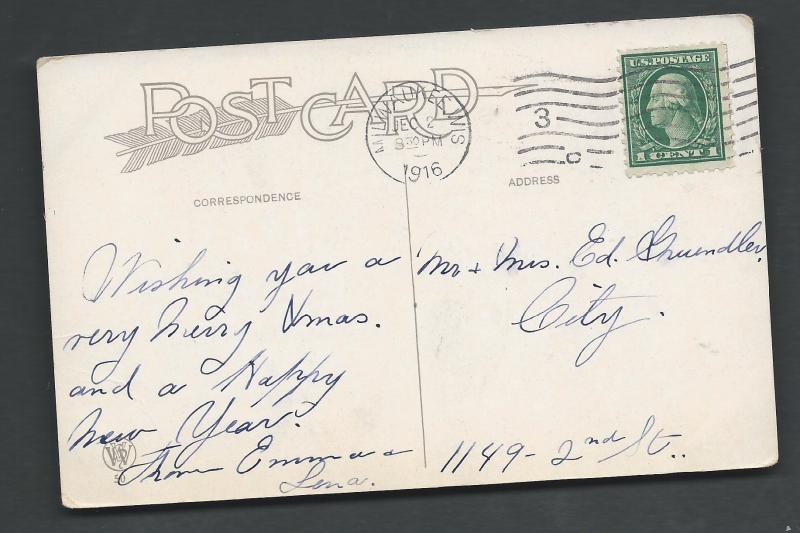 POST CARD
MILWAUKEE, WIS
DEC 2
8 30 PM
1916
3
C
U.S. POSTAGE
1 CENT 1
CORRESPONDENCE
ADDRESS
Wishing you a
very merry Xmas.
and a Happy
New Year.
From Emma &
Lena.
Mr & Mrs. Ed. Gruendler,
City.
1149 - 2nd St..